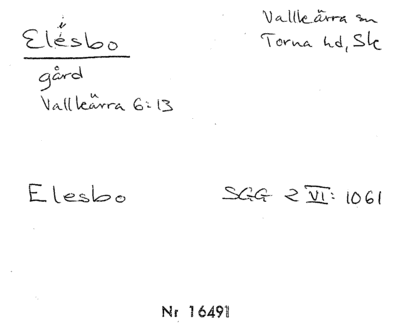 Elésbo
gård
Vallkärra 6:13
Vallkärra sn
Torna hd, Sk
Elesbo SGG 2 VI: 1061
Nr 16491